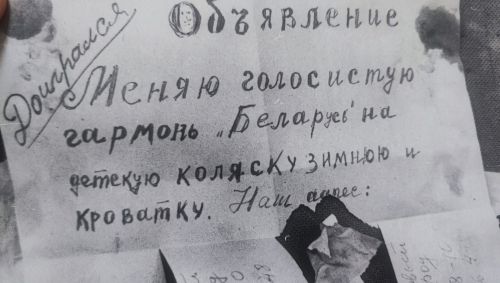 Объявление
Доигрался
Меняю голосистую
гармонь „Беларусь" на
детскую коляску зимнюю и
кроватку. Наш адрес: